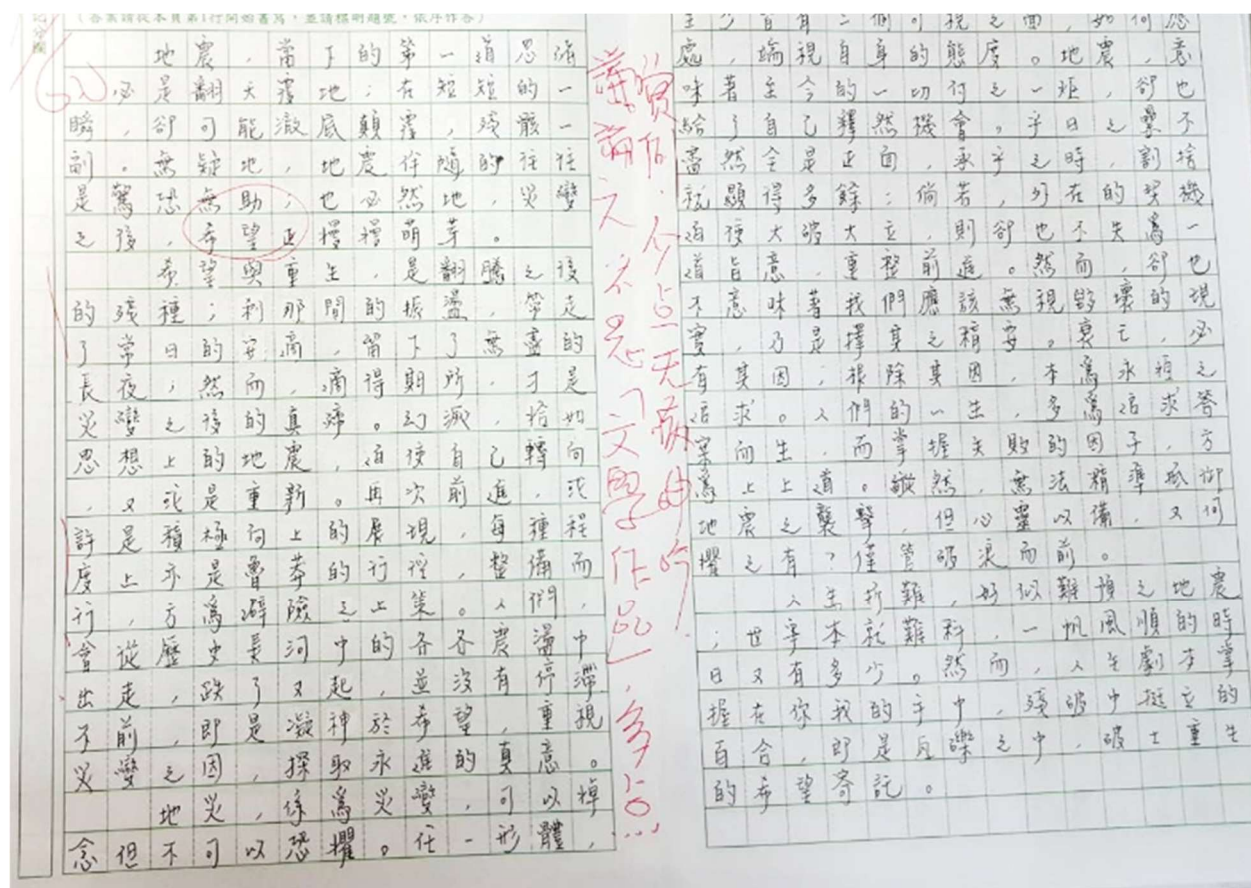 (答案請從本頁第1行開始書寫，並請標明題號，依序作答)
地震，當下的第一道思緒
，必是翻天覆地；在短短的一
瞬，卻可能澈底顛覆，殘骸一
副。無疑地，地震伴隨的往往
是驚恐無助；也必然地，災變
之後，希望正慢慢萌芽。
希望與重生，是翻騰之後
的殘種；剎那間的振盪，帶走
了常日的安適，留下了無盡的
長夜；然而，適得期所，才是
災變之後的真諦。幻滅，恰如
思想上的地震，迫使自己轉向
，又或是重新。再次前進，或
許是積極向上的展現，每種程
度上亦是魯莽的行徑，整備而
行，方為避險之上策。人們，
會從歷史長河中的各各震盪中
出走，跌了又起，並沒有停滯
不前，即是凝神於希望，重視
災變之因，探取永進的真意。
地災，係為災變，可以悼
念但不可以恐懼。任一形體，
至少皆有二個可視之面，如何應
處，端視自身的態度。地震，意
味著至今的一切付之一炬，卻也
給了自己釋然機會。平日之學不
盡然全是正面，承平之時，割捨
就顯得多餘；倘若，外在的契機
迫使大破大立，則卻也不失為一
道旨意，重整前進。然而，卻也
不意味著我們應該無視毀壞的現
實，乃是擇其之精要。衰亡，必
有其因；根除其因，本為永恆之
追求。人們的一生，多為追求答
案而生，而掌握失敗的因子，方
為上上道。縱然，無法精準抵禦
地震之襲擊，但心靈以備，又何
懼之有？僅管破浪而前。
人生折難，好似難預之地震
；世寧本就難料，一帆風順的時
日又有多少。然而，人生劇本掌
握在你我的手中，殘破中挺立的
百合，即是瓦礫之中，破土重生
的希望寄託。
賞析：今点无病呻吟！
議論文不是「文學作品」，